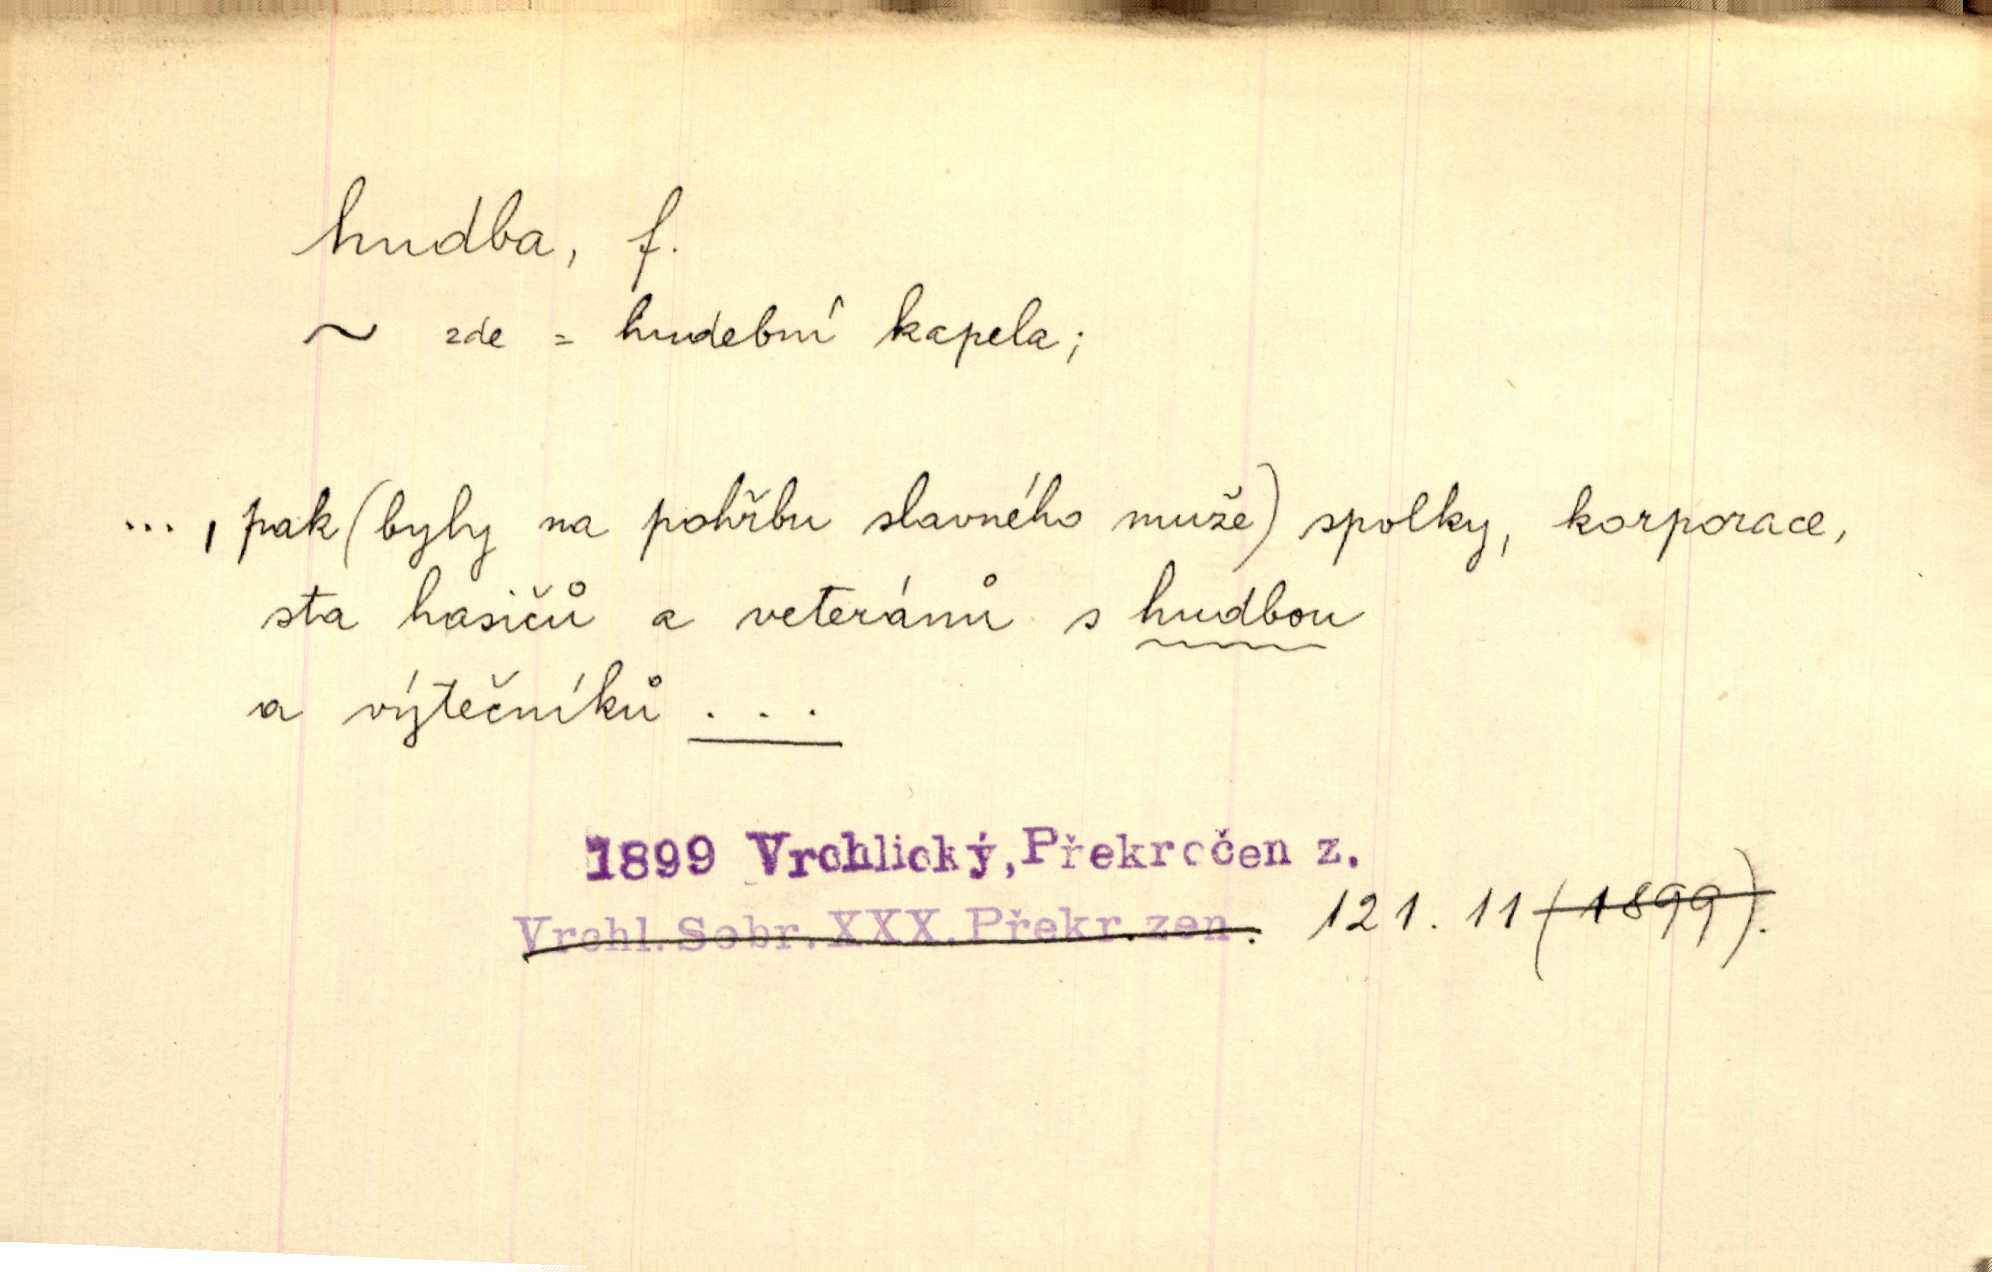 hudba, f.
~ zde = hudební kapela;
..., pak (byly na pohřbu slavného muže) spolky, korporace,
sta hasičů a veteránů s hudbou
a výtečníků ...
1899 Vrchlický, Překročen z.
Vrchl. Sobr. XXX. Překr. zen. 121. 11 (1899).